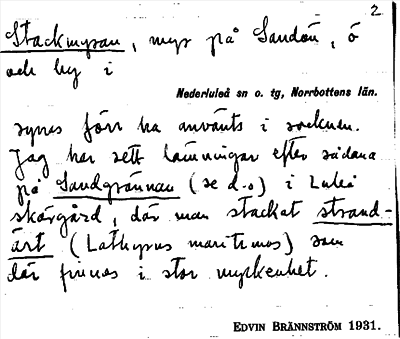 2
Stackmyran, myr på Sandön, ö
och by i
Nederluleå sn o. tg, Norrbottens län.
synes förr ha använts i socknen.
Jag har sett lämningar efter sådana
på Sandgrännan (se d.o) i Luleå
skärgård, där man stackat strand-
ärt (Lathyrus maritimus) som
där finnes i stor myckenhet.
EDVIN BRÄNNSTRÖM 1931.